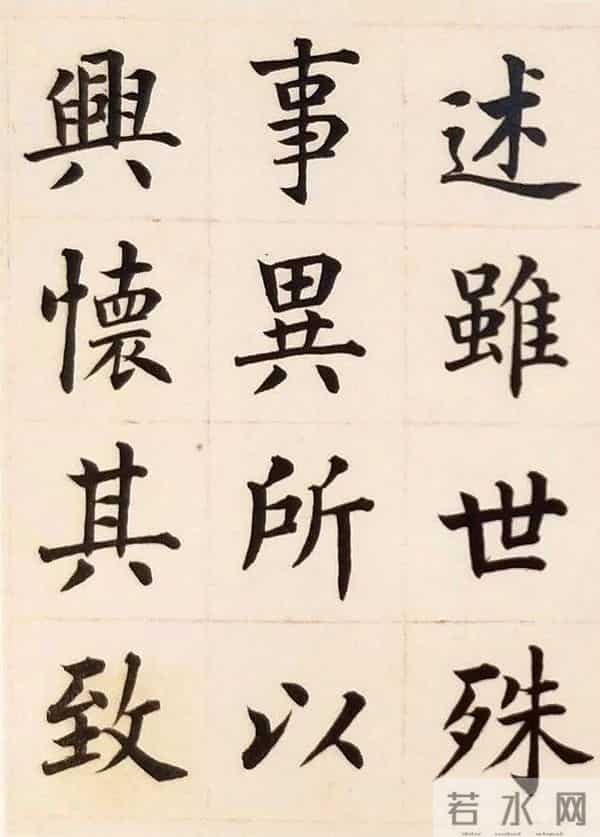 述雖世殊
事異所以
興懷其致
若水网